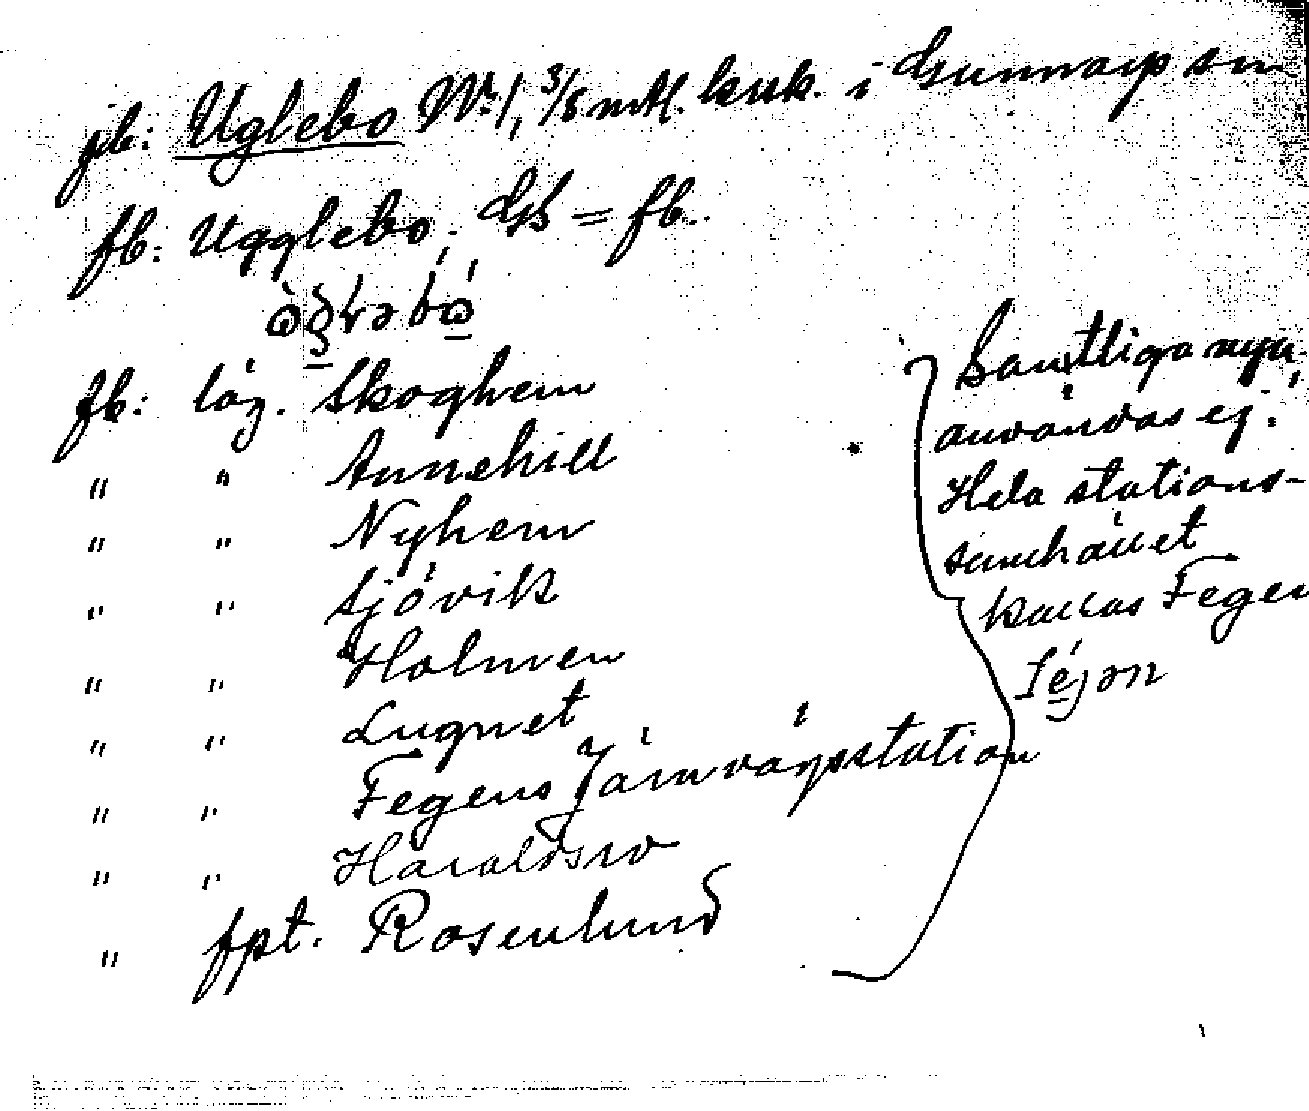 jb: Uglebo Nr 1, 3/8 mtl. kr.sk. i Gunnarp sn
fb: Ugglebo; GS = fb.
fb: läg. Skoghem
" " Annehill
" " Nyhem
" " Sjövik
" " Holmen
" " Lugnet
" " Fegens Järnvägsstation
" " Haraldsro
" fpt. Rosenlund
Samtliga
användas ej.
Hela stations-
samhället
kallas Fegen